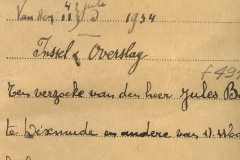 Van den 4 July 1934
Instel & Overslag
f 49
Ten verzoeke van den heer Jules B
te Dixmude en andere van